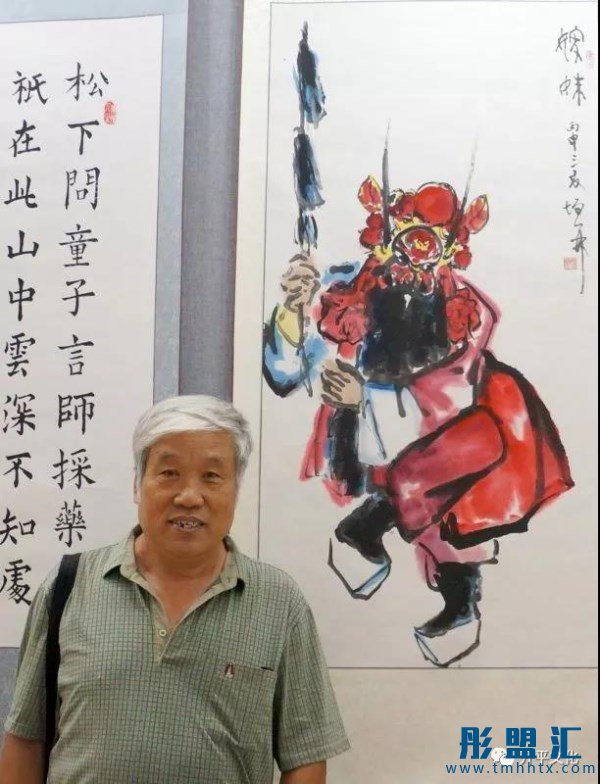 松下問童子言師採藥
祇在此山中雲深不知處
嫁妹
彤盟汇
www.tmhhtx.com